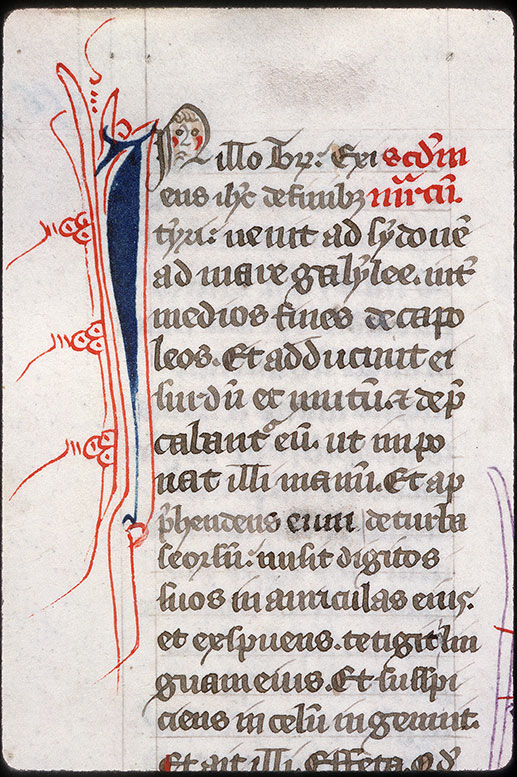 In illo tp̄r: Exi scd̄m
ens ih̄c definibꝫ mr̄cū.
tyri: uenit ad sydonē
ad mare galylee. int̄
medios fines decapo
leos. Et adducunt ei
surdū et mutū. ⁊ dep̄
cabant᷑ eū. ut inpo
nat illi manū. Et ap
p̄hendens eum deturba
seorsū: misit digitos
suos in auriculas eius.
et exspuens. tetigit lin
guam eius. Et suspi
ciens in celū ingemuit.
Et ait illi. Effeta. qd̄